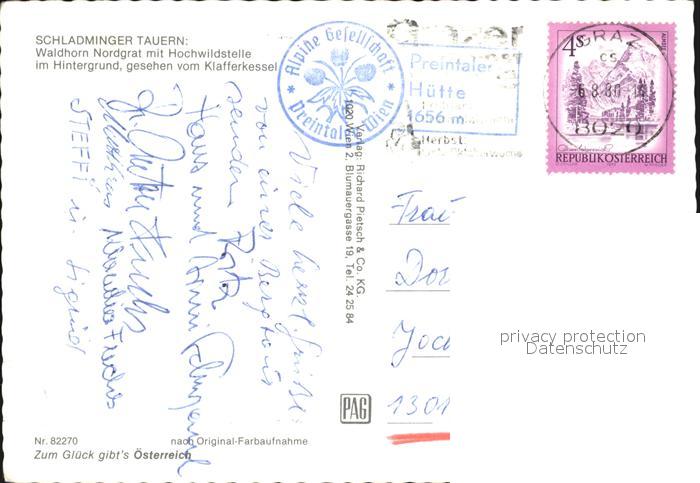 SCHLADMINGER TAUERN:
Waldhorn Nordgrat mit Hochwildstelle
im Hintergrund, gesehen vom Klafferkessel
Alpine Gesellschaft
Preintaler Wien
Preintaler
Hütte
1656 m
Herbst
4s
REPUBLIK ÖSTERREICH
GRAZ
6.8.80
8020
Verlag: Richard Pietsch & Co. KG.
1020 Wien 2, Blumauergasse 19, Tel. 24 25 84
Viele herzl. Grüße
von einer Bergtour
senden
Hans und
STEFFI u. Sigrid
Frau
Dor
Joch
1301
privacy protection
Datenschutz
PAG
Nr. 82270
nach Original-Farbaufnahme
Zum Glück gibt's Österreich